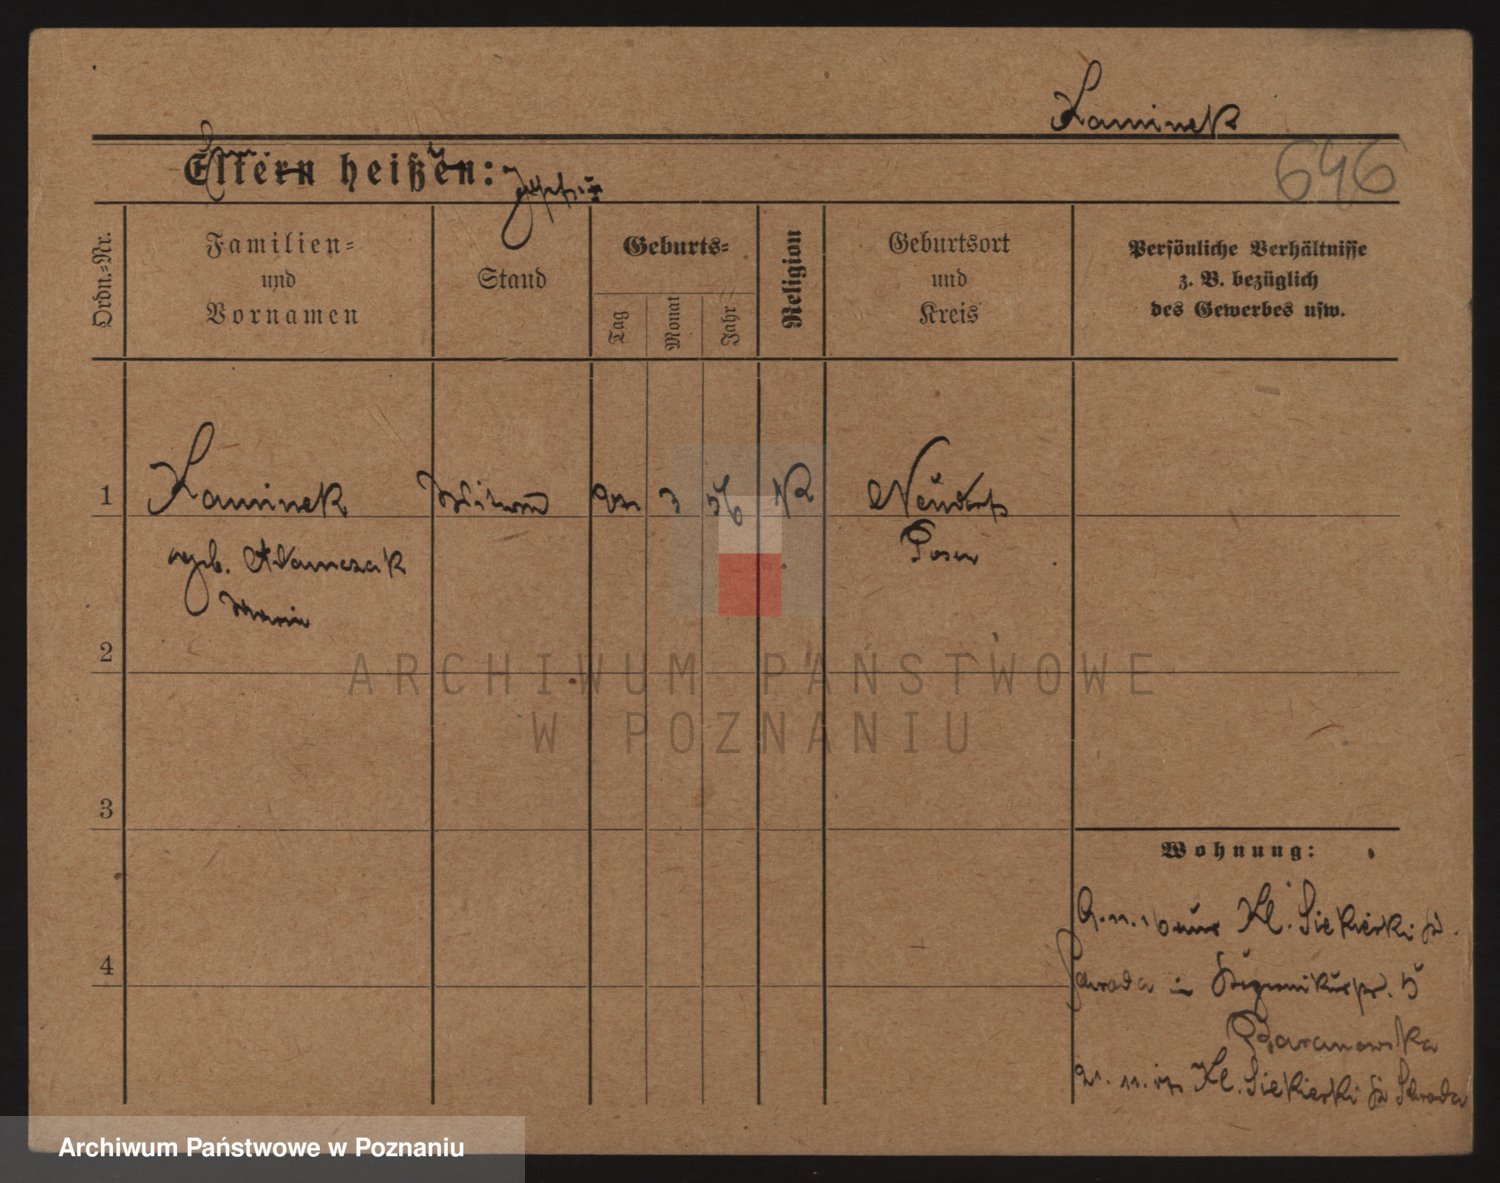 Kaminek
646
Eltern heißen:
Ordn.-Nr.
Familien-
und
Vornamen
Stand
Geburts-
Tag
Monat
Jahr
Religion
Geburtsort
und
Kreis
Persönliche Verhältnisse
z. B. bezüglich
des Gewerbes usw.
1 Kaminek 3 56 K Neudorf
geb. Adamczak Posen
Maria
2
3
4
Wohnung:
Kl. Siekierki
Schroda in 5
Baranowska
Kl. Siekierki Schroda
ARCHIWUM PAŃSTWOWE
W POZNANIU
Archiwum Państwowe w Poznaniu